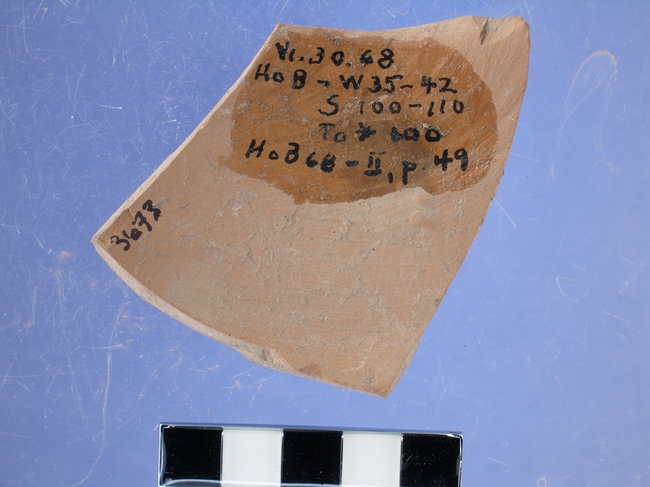 VI.30.68
HoB - W35-42
S 100-110
To * 100
HoB 68-II, p. 49
3673